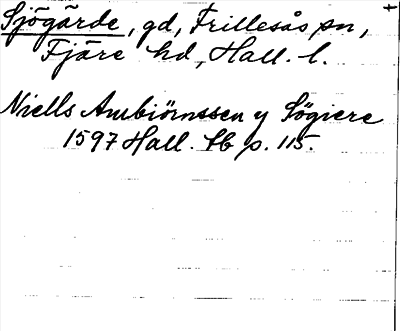 Sjögärde, gd, Frillesås sn,
Fjäre hd, Hall. l.
Niells Ambiörnssen y Sögiere
1597 Hall. Sb p. 115.